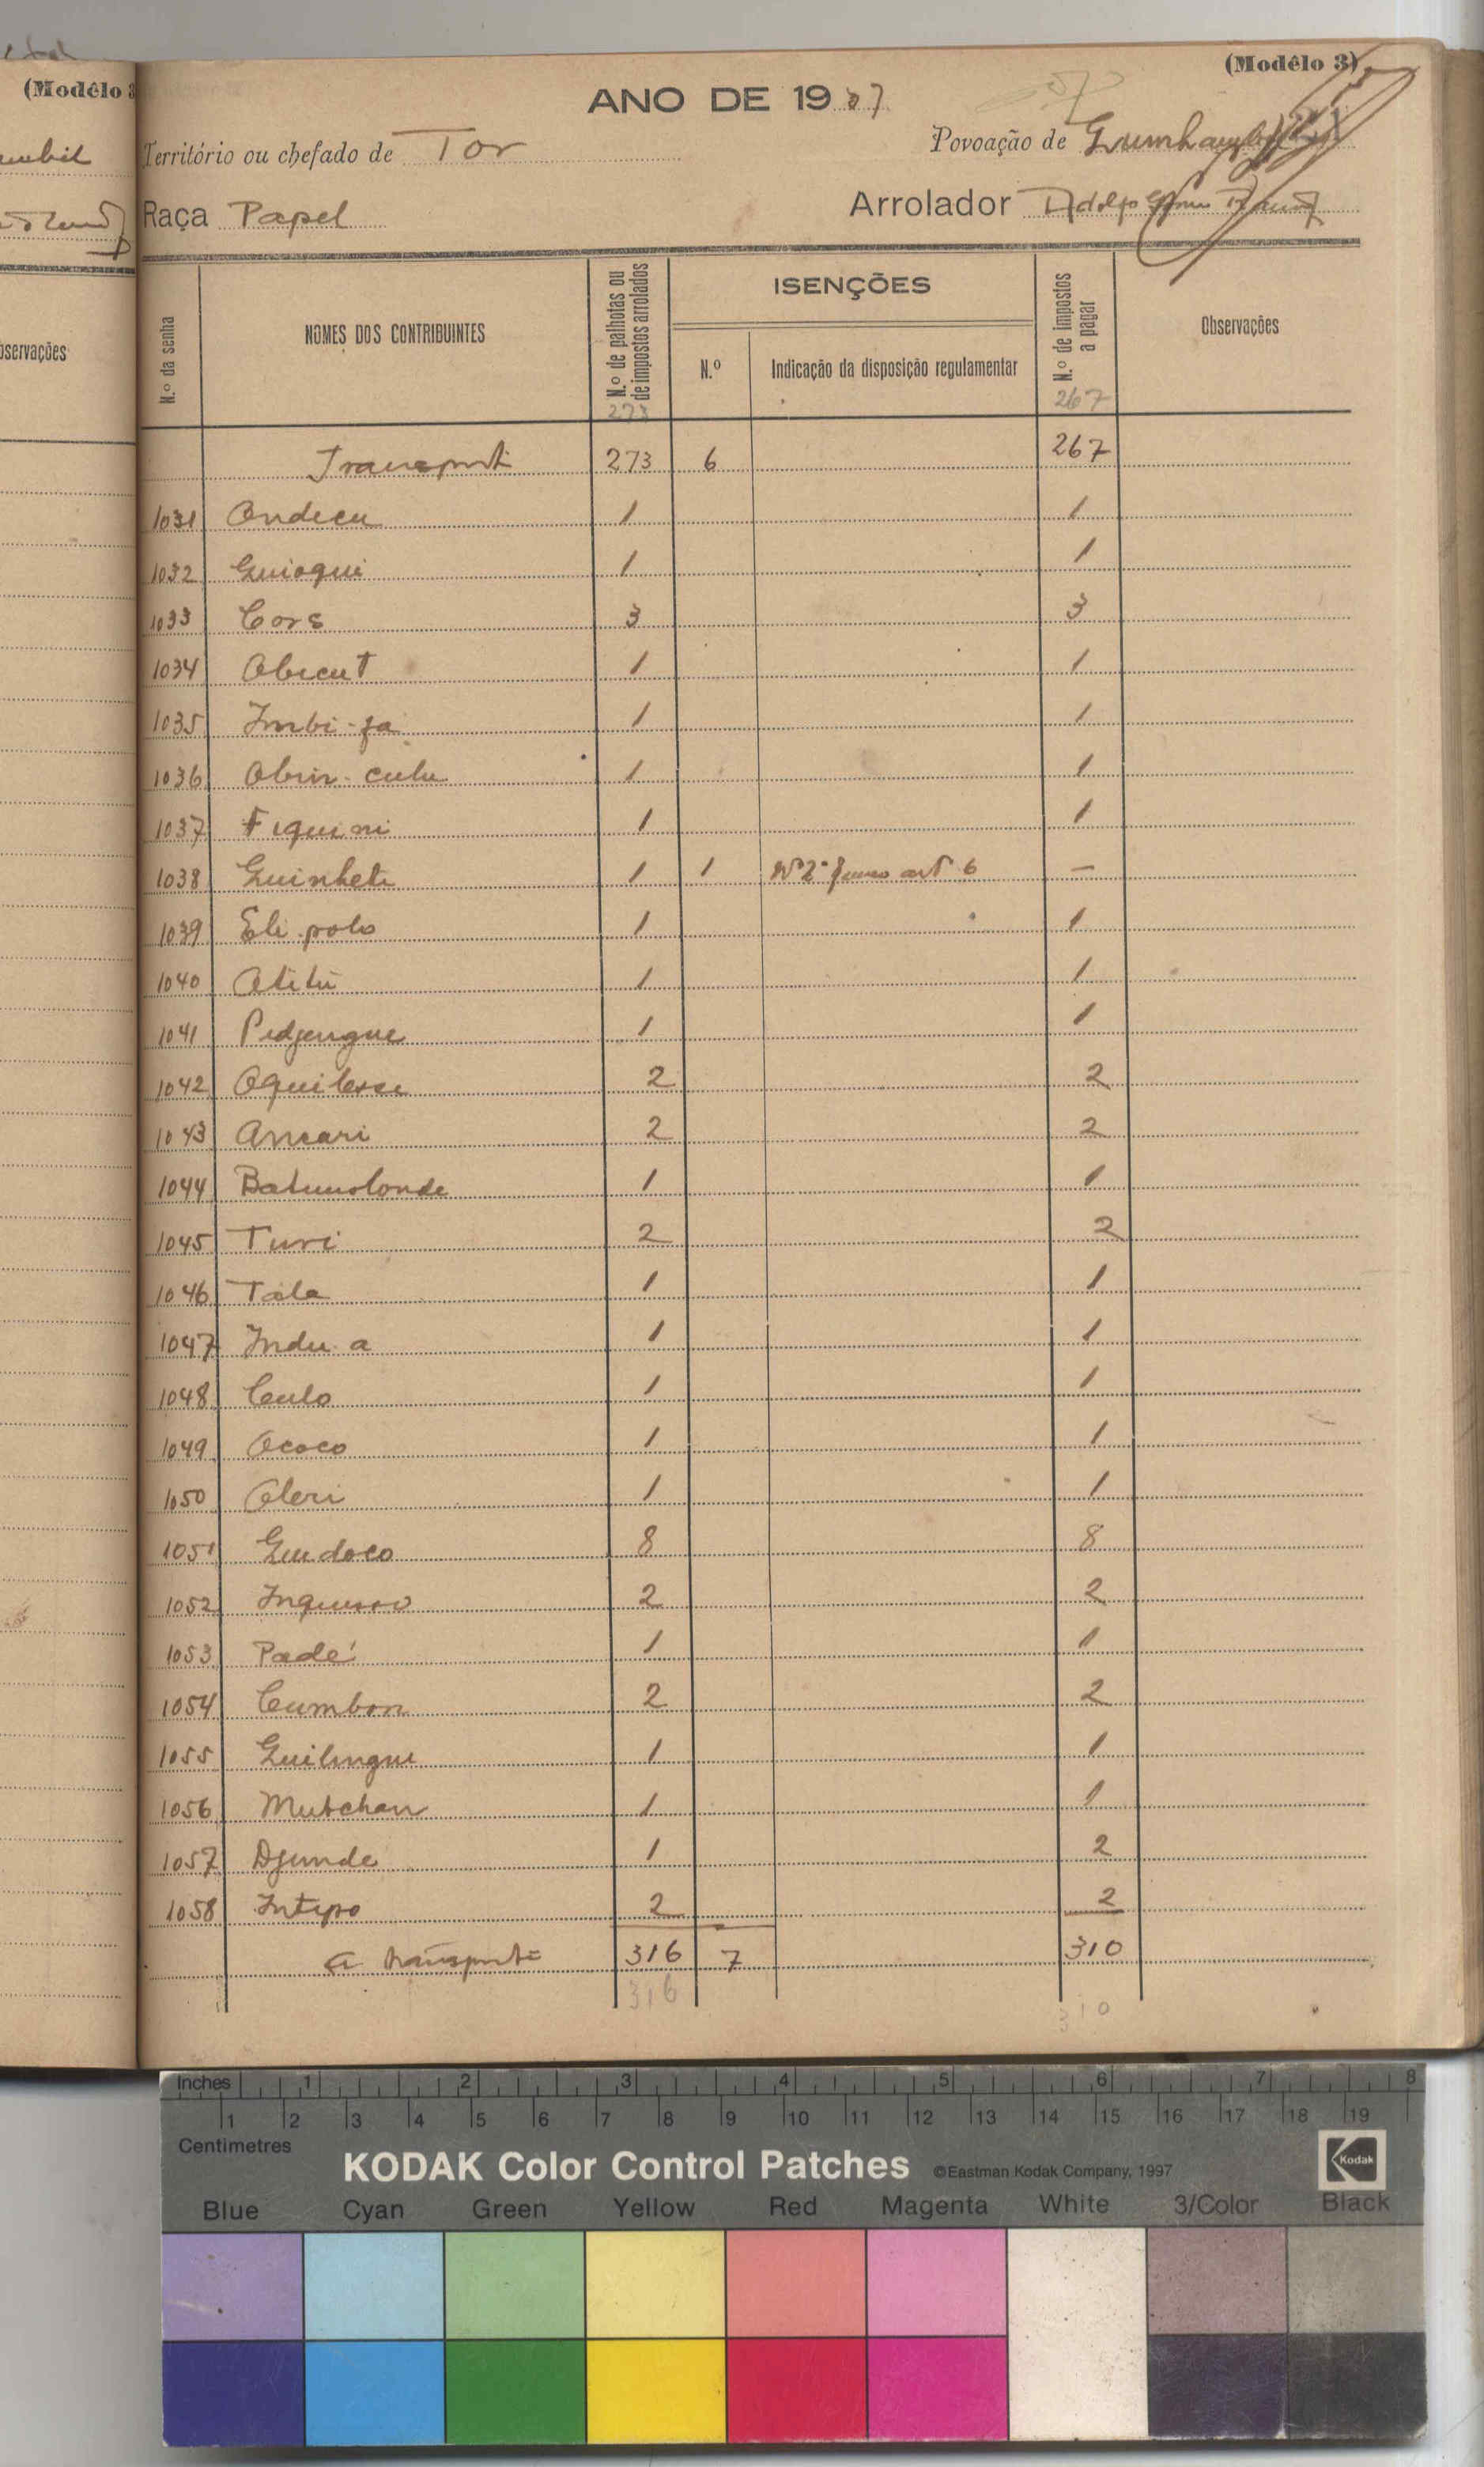 (Modêlo 3)
(Modêlo 3)
ANO DE 1937
Território ou chefado de Tor
Povoação de
Raça Papel
Arrolador Adolfo
Observações
N.º da senha
NOMES DOS CONTRIBUINTES
N.º de palhotas ou de impostos arrolados
ISENÇÕES
N.º
Indicação da disposição regulamentar
N.º de impostos a pagar
Observações
273 267
Transporte 273 6 267
1031 Ondecu 1 1
1032 Guioqui 1 1
1033 Cors 3 3
1034 Obicut 1 1
1035 Imbi-fa 1 1
1036 Obin-culu 1 1
1037 Fiquini 1 1
1038 Guinhete 1 1 Nº 2º art 6 —
1039 Eli polo 1 1
1040 Atitu 1 1
1041 Pedjengue 1 1
1042 2 2
1043 Ancari 2 2
1044 Batumolonde 1 1
1045 Turi 2 2
1046 Tala 1 1
1047 Indu a 1 1
1048 Culo 1 1
1049 Ococo 1 1
1050 Oleri 1 1
1051 Gudoco 8 8
1052 2 2
1053 Padé 1 1
1054 Cumbon 2 2
1055 Guilingui 1 1
1056 Mutchan 1 1
1057 Djunde 1 2
1058 2 2
A transporte 316 7 310
316 310
Inches 1 2 3 4 5 6 7 8
1 2 3 4 5 6 7 8 9 10 11 12 13 14 15 16 17 18 19
Centimetres
KODAK Color Control Patches ©Eastman Kodak Company, 1997 Kodak
Blue Cyan Green Yellow Red Magenta White 3/Color Black